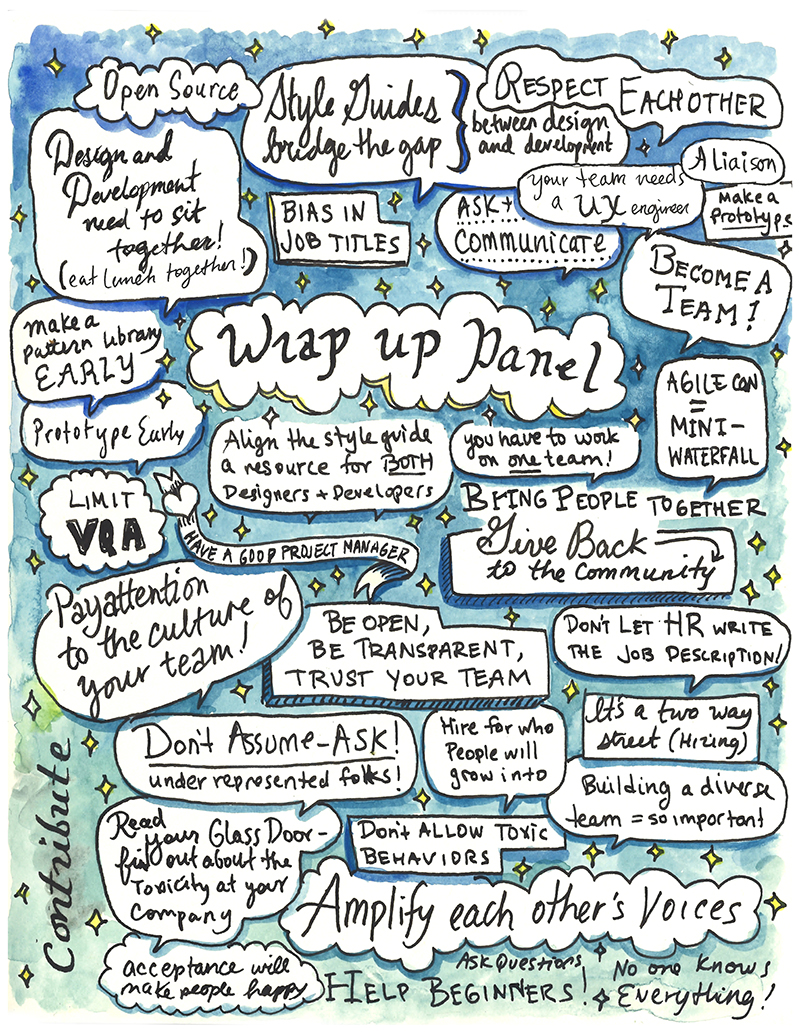 Open Source
Style Guides
bridge the gap
between design
and development
RESPECT EACH OTHER
Design and
Development
need to sit
together!
(eat lunch together!)
BIAS IN
JOB TITLES
ASK +
COMMUNICATE
your team needs
a UX engineer
A liaison
make a
prototype
BECOME A
TEAM!
make a
pattern library
EARLY
Wrap up Panel
AGILE CAN
=
MINI-
WATERFALL
Prototype Early
Align the style guide
a resource for BOTH
Designers + Developers
you have to work
on one team!
LIMIT
VQA
HAVE A GOOD PROJECT MANAGER
BRING PEOPLE TOGETHER
Give Back
to the community
Pay attention
to the culture of
your team!
BE OPEN,
BE TRANSPARENT,
TRUST YOUR TEAM
DON'T LET HR WRITE
THE JOB DESCRIPTION!
It's a two way
street (Hiring)
Don't Assume-ASK!
under represented folks!
Hire for who
People will
grow into
Building a diverse
team = so important
Contribute
Read
your Glass Door-
find out about the
Toxicity at your
Company
Don't ALLOW TOXIC
BEHAVIORS
Amplify each other's Voices
acceptance will
make people happy
HELP BEGINNERS!
ASK Questions
No one knows
Everything!